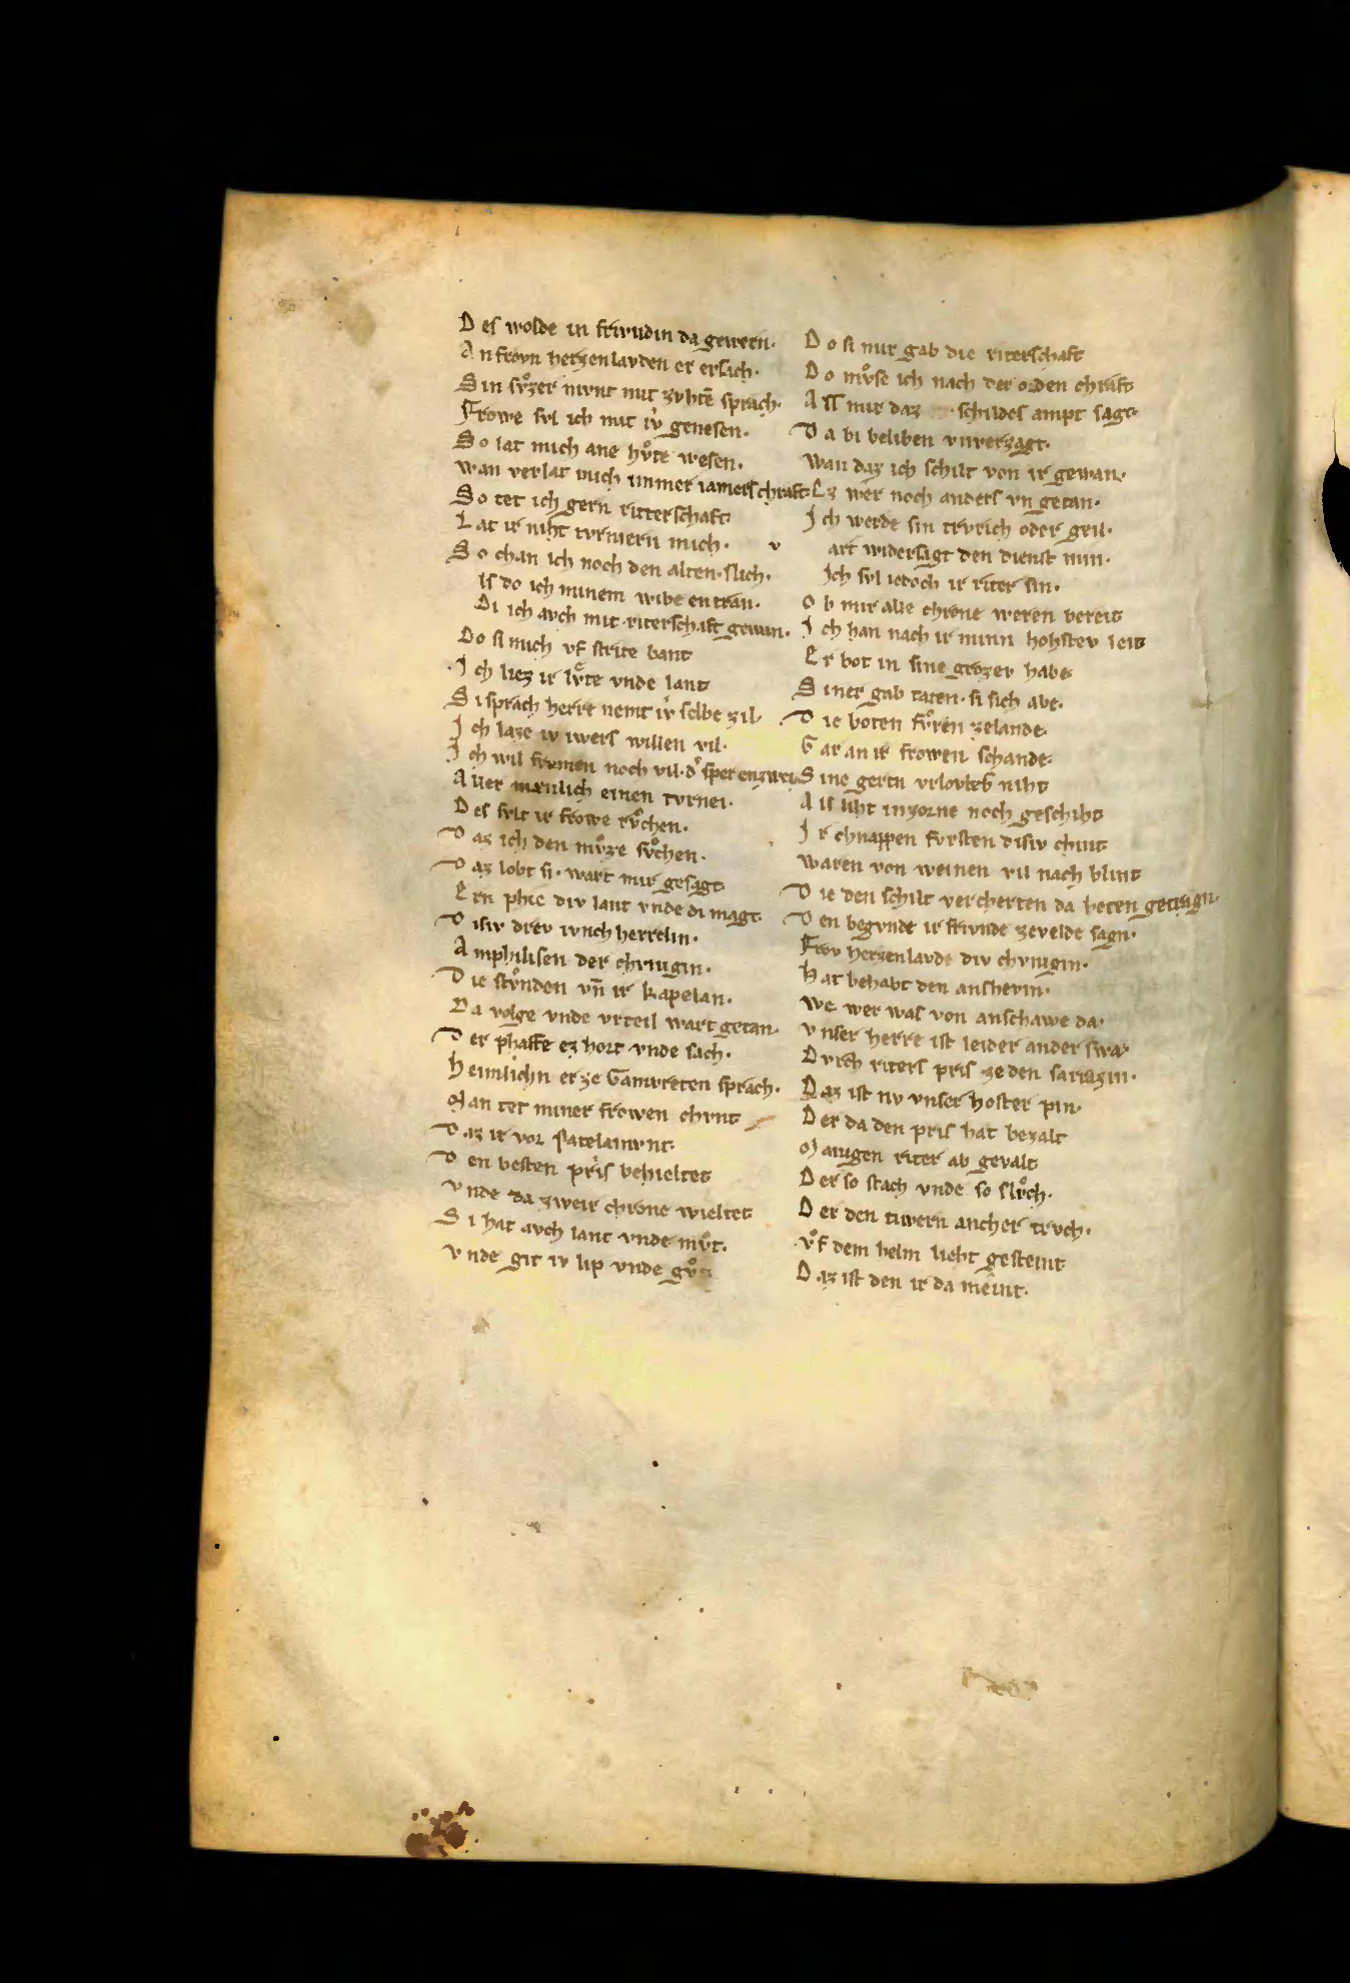 D es wolde in friwudin da gewern·
A n frovn herzenlavden er ersach·
S in sv̊zer mvnt mit zvhtē sprach·
Frowe svl ich mit iv̓ genesen·
S o lat mich ane hv̊te wesen·
wan verlat mich immer iamers chraft·
S o tet ich gern ritterschaft
L at ir niht tvrniern mich·
S o chan ich noch den alten· slich·
ls do ich minem wibe entran·
Di ich avch mit· riterschaft gewan·
Do si mich vf strite bant
·J ch liez ir lv̊te vnde lant
S i sprach herre nemt iv̓ selbe zil·
J ch laze iv iwers willen vil·
J ch wil frvmen noch vil· d̓ sper enzwei
A ller mænlich einen tvrnei·
D es svlt ir frowe rv̊chen·
D az ich den mv̊ze sv̊chen·
D az lobt si· wart mir gesagt
E rn phie div lant vnde di magt·
D isiv drev ivnch herrelin·
A mphilisen der chvnigin·
D ie stv̊nden vn̄ ir kapelan·
D a volge vnde vrteil wart getan·
D er phaffe ez hort vnde sach·
H eimlichn er ze Gamvreten sprach·
M an tet miner frowen chvnt
D az ir vor patelamvnt·
D en besten pris behieltet
V nde da zweir chrone wieltet
S i hat avch lant vnde mv̊t·
V nde git iv lip vnde
D o si mir gab die riterschaft
D o mv̊se ich nach der orden chraft
A ls mir daz schildes ampt sagt·
D a bi beliben vnverzagt·
wan daz ich schilt von ir gewan·
Ez wer noch anders vn getan·
J ch werde sin trvrich oder geil·
v art widersagt den dienst min·
Jch svl iedoch ir riter sin·
O b mir alle chrone weren bereit
J ch han nach ir minn hohstev leit
E r bot in sine grozer habe
S iner gab taten· si sich abe·
D ie boten fv̊ren zelande·
G ar an ir frowen schande·
S ine gertn vrlovbes niht
A ls liht inzorne noch geschiht
J r chnappen fvrsten disiv chint
waren von weinen vil nach blint
D ie den schilt vercherten da heten getragn·
D en begvnde ir friwnde zevelde sagn·
Frov herzenlavde div chvnigin·
H at behabt den anshevin·
We wer was von anschawe da·
V nser herre ist leider ander swa·
D vrch riters pris ze den sarrazin·
D az ist nv vnser hoster pin·
D er da den pris hat bezalt
M anigen riter ab gevalt
D er so stach vnde so slv̊ch·
D er den tiwern ancher trvch·
v̊f dem helm lieht gesteint
D az ist den ir da meint·